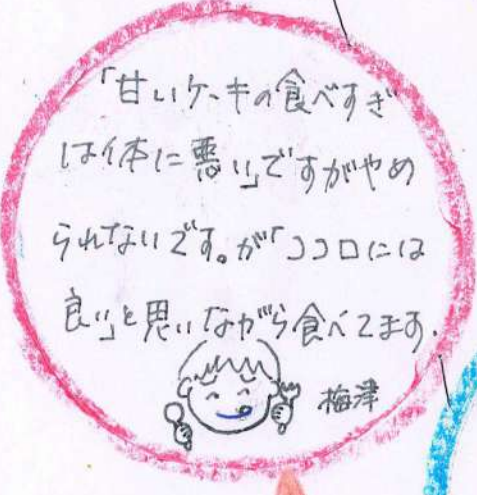 「甘いケーキの食べすぎ
は体に悪い」ですがやめ
られないです。が「ココロには
良い」と思いながら食べてます.
梅津